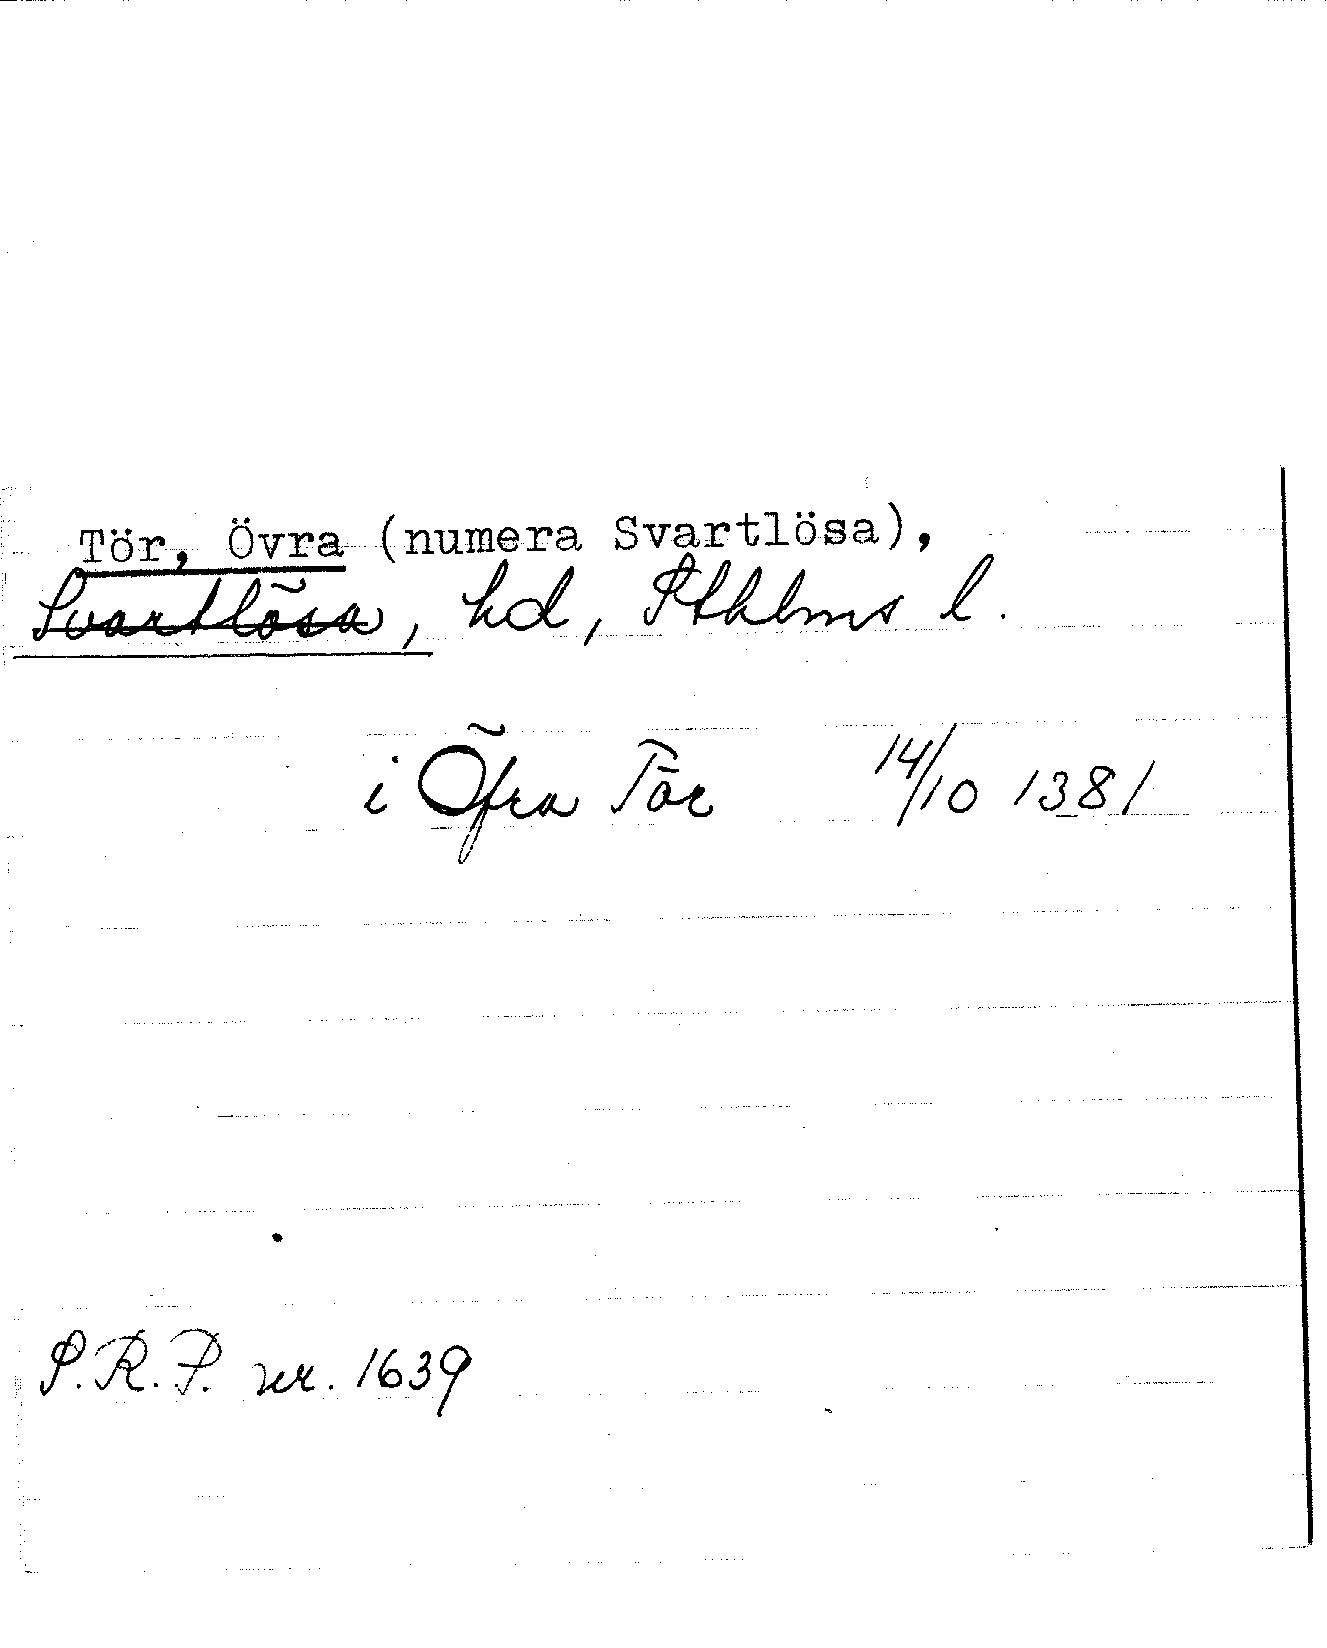 Tör, Övra (numera Svartlösa),
Svartlösa, hd, Sthlms l.
i Öfra Tör 14/10 1381
S.R.P. nr. 1639